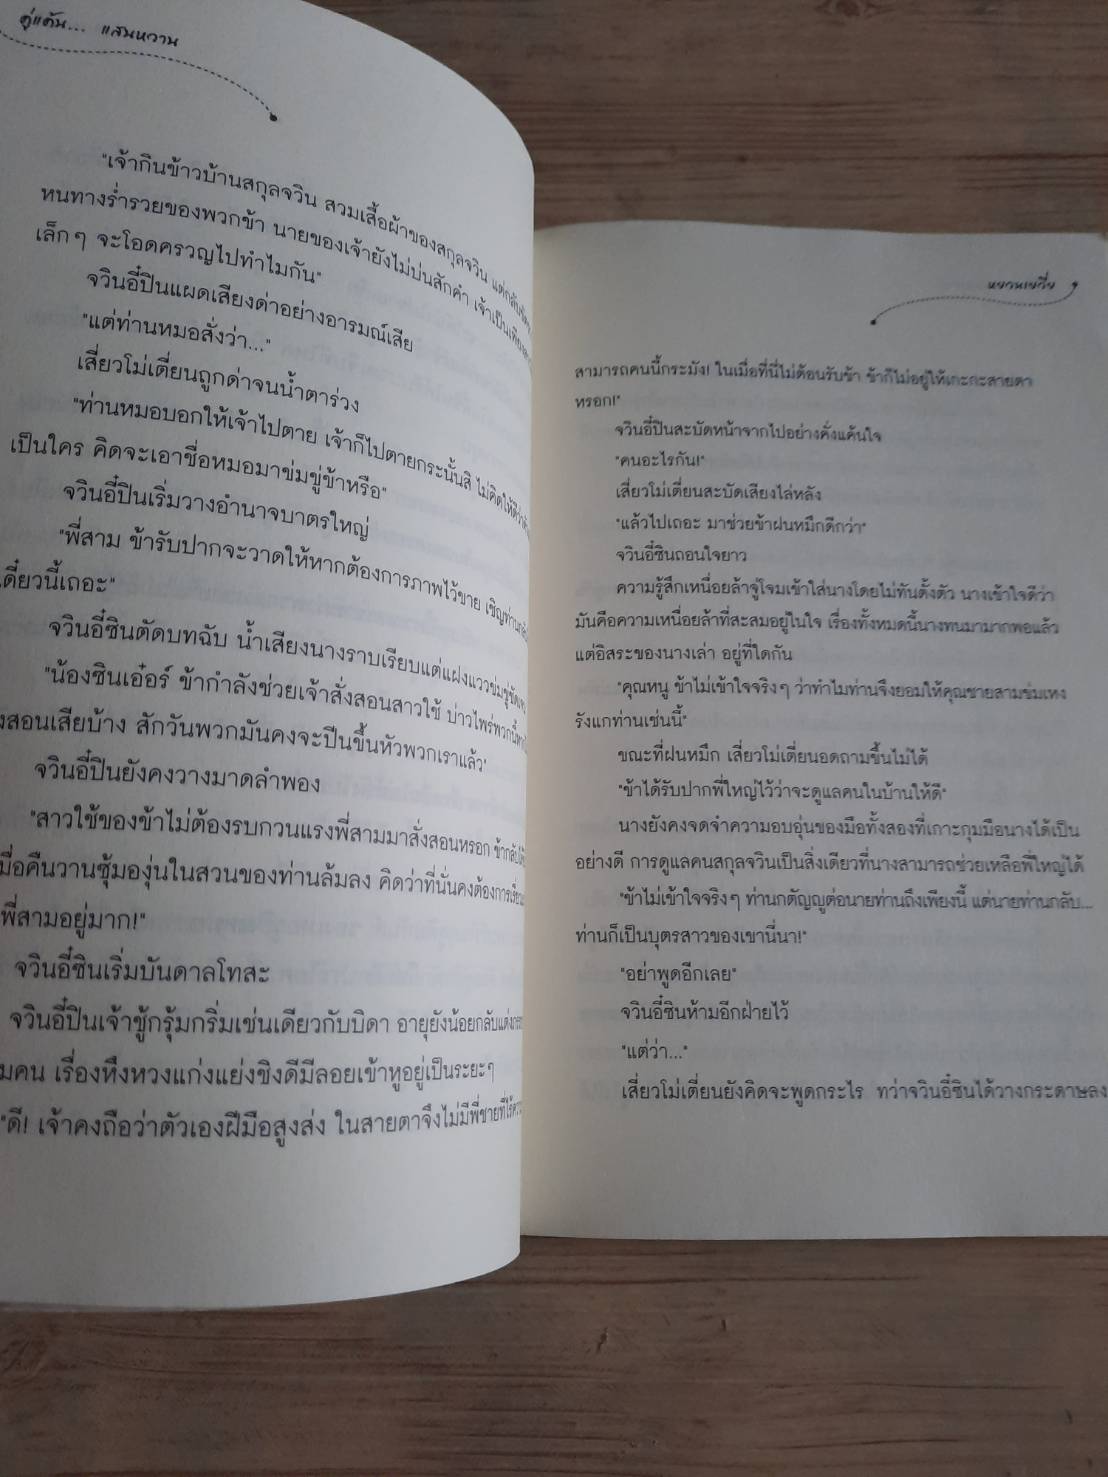 คู่แค้น... แสนหวาน
"เจ้ากินข้าวบ้านสกุลจวิน สวมเสื้อผ้าของสกุลจวิน แต่กลับ
หนทางร่ำรวยของพวกข้า นายของเจ้ายังไม่บ่นสักคำ เจ้าเป็นเพียง
เล็กๆ จะโอดครวญไปทำไมกัน"
จวินอี๋ปินแผดเสียงด่าอย่างอารมณ์เสีย
"แต่ท่านหมอสั่งว่า..."
เสี่ยวโม่เตี่ยนถูกด่าจนน้ำตาร่วง
"ท่านหมอบอกให้เจ้าไปตาย เจ้าก็ไปตายกระนั้นสิ ไม่คิดให้ดีว่า
เป็นใคร คิดจะเอาชื่อหมอมาข่มขู่ข้าหรือ"
จวินอี๋ปินเริ่มวางอำนาจบาตรใหญ่
"พี่สาม ข้ารับปากจะวาดให้หากต้องการภาพไว้ขาย เชิญท่าน
เดี๋ยวนี้เถอะ"
จวินอี๋ซินตัดบทฉับ น้ำเสียงนางราบเรียบแต่แฝงแววข่มขู่
"น้องซินเอ๋อร์ ข้ากำลังช่วยเจ้าสั่งสอนสาวใช้ บ่าวไพร่พวกนี้
งสอนเสียบ้าง สักวันพวกมันคงจะปีนขึ้นหัวพวกเราแล้ว"
จวินอี๋ปินยังคงวางมาดลำพอง
"สาวใช้ของข้าไม่ต้องรบกวนแรงพี่สามมาสั่งสอนหรอก ข้ากลับ
มื่อคืนวานซุ้มองุ่นในสวนของท่านล้มลง คิดว่าที่นั่นคงต้องการเรี่ยวแรง
พี่สามอยู่มาก!"
จวินอี๋ซินเริ่มบันดาลโทสะ
จวินอี๋ปินเจ้าชู้กรุ้มกริ่มเช่นเดียวกับบิดา อายุยังน้อยกลับแต่งภรรยา
มคน เรื่องหึงหวงแก่งแย่งชิงดีมีลอยเข้าหูอยู่เป็นระยะๆ
"ดี! เจ้าคงถือว่าตัวเองฝีมือสูงส่ง ในสายตาจึงไม่มีพี่ชายที่ไร้ความ
หยวนเยวี่ย
สามารถคนนี้กระมัง! ในเมื่อที่นี่ไม่ต้อนรับข้า ข้าก็ไม่อยู่ให้เกะกะสายตา
หรอก!"
จวินอี๋ปินสะบัดหน้าจากไปอย่างคั่งแค้นใจ
"คนอะไรกัน!"
เสี่ยวโม่เตี่ยนสะบัดเสียงไล่หลัง
"แล้วไปเถอะ มาช่วยข้าฝนหมึกดีกว่า"
จวินอี๋ซินถอนใจยาว
ความรู้สึกเหนื่อยล้าจู่โจมเข้าใส่นางโดยไม่ทันตั้งตัว นางเข้าใจดีว่า
มันคือความเหนื่อยล้าที่สะสมอยู่ในใจ เรื่องทั้งหมดนี้นางทนมามากพอแล้ว
แต่อิสระของนางเล่า อยู่ที่ใดกัน
"คุณหนู ข้าไม่เข้าใจจริงๆ ว่าทำไมท่านจึงยอมให้คุณชายสามข่มเหง
รังแกท่านเช่นนี้"
ขณะที่ฝนหมึก เสี่ยวโม่เตี่ยนอดถามขึ้นไม่ได้
"ข้าได้รับปากพี่ใหญ่ไว้ว่าจะดูแลคนในบ้านให้ดี"
นางยังคงจดจำความอบอุ่นของมือทั้งสองที่เกาะกุมมือนางได้เป็น
อย่างดี การดูแลคนสกุลจวินเป็นสิ่งเดียวที่นางสามารถช่วยเหลือพี่ใหญ่ได้
"ข้าไม่เข้าใจจริงๆ ท่านกตัญญูต่อนายท่านถึงเพียงนี้ แต่นายท่านกลับ...
ท่านก็เป็นบุตรสาวของเขานี่นา!"
"อย่าพูดอีกเลย"
จวินอี๋ซินห้ามอีกฝ่ายไว้
"แต่ว่า..."
เสี่ยวโม่เตี่ยนยังคิดจะพูดกระไร ทว่าจวินอี๋ซินได้วางกระดาษลง